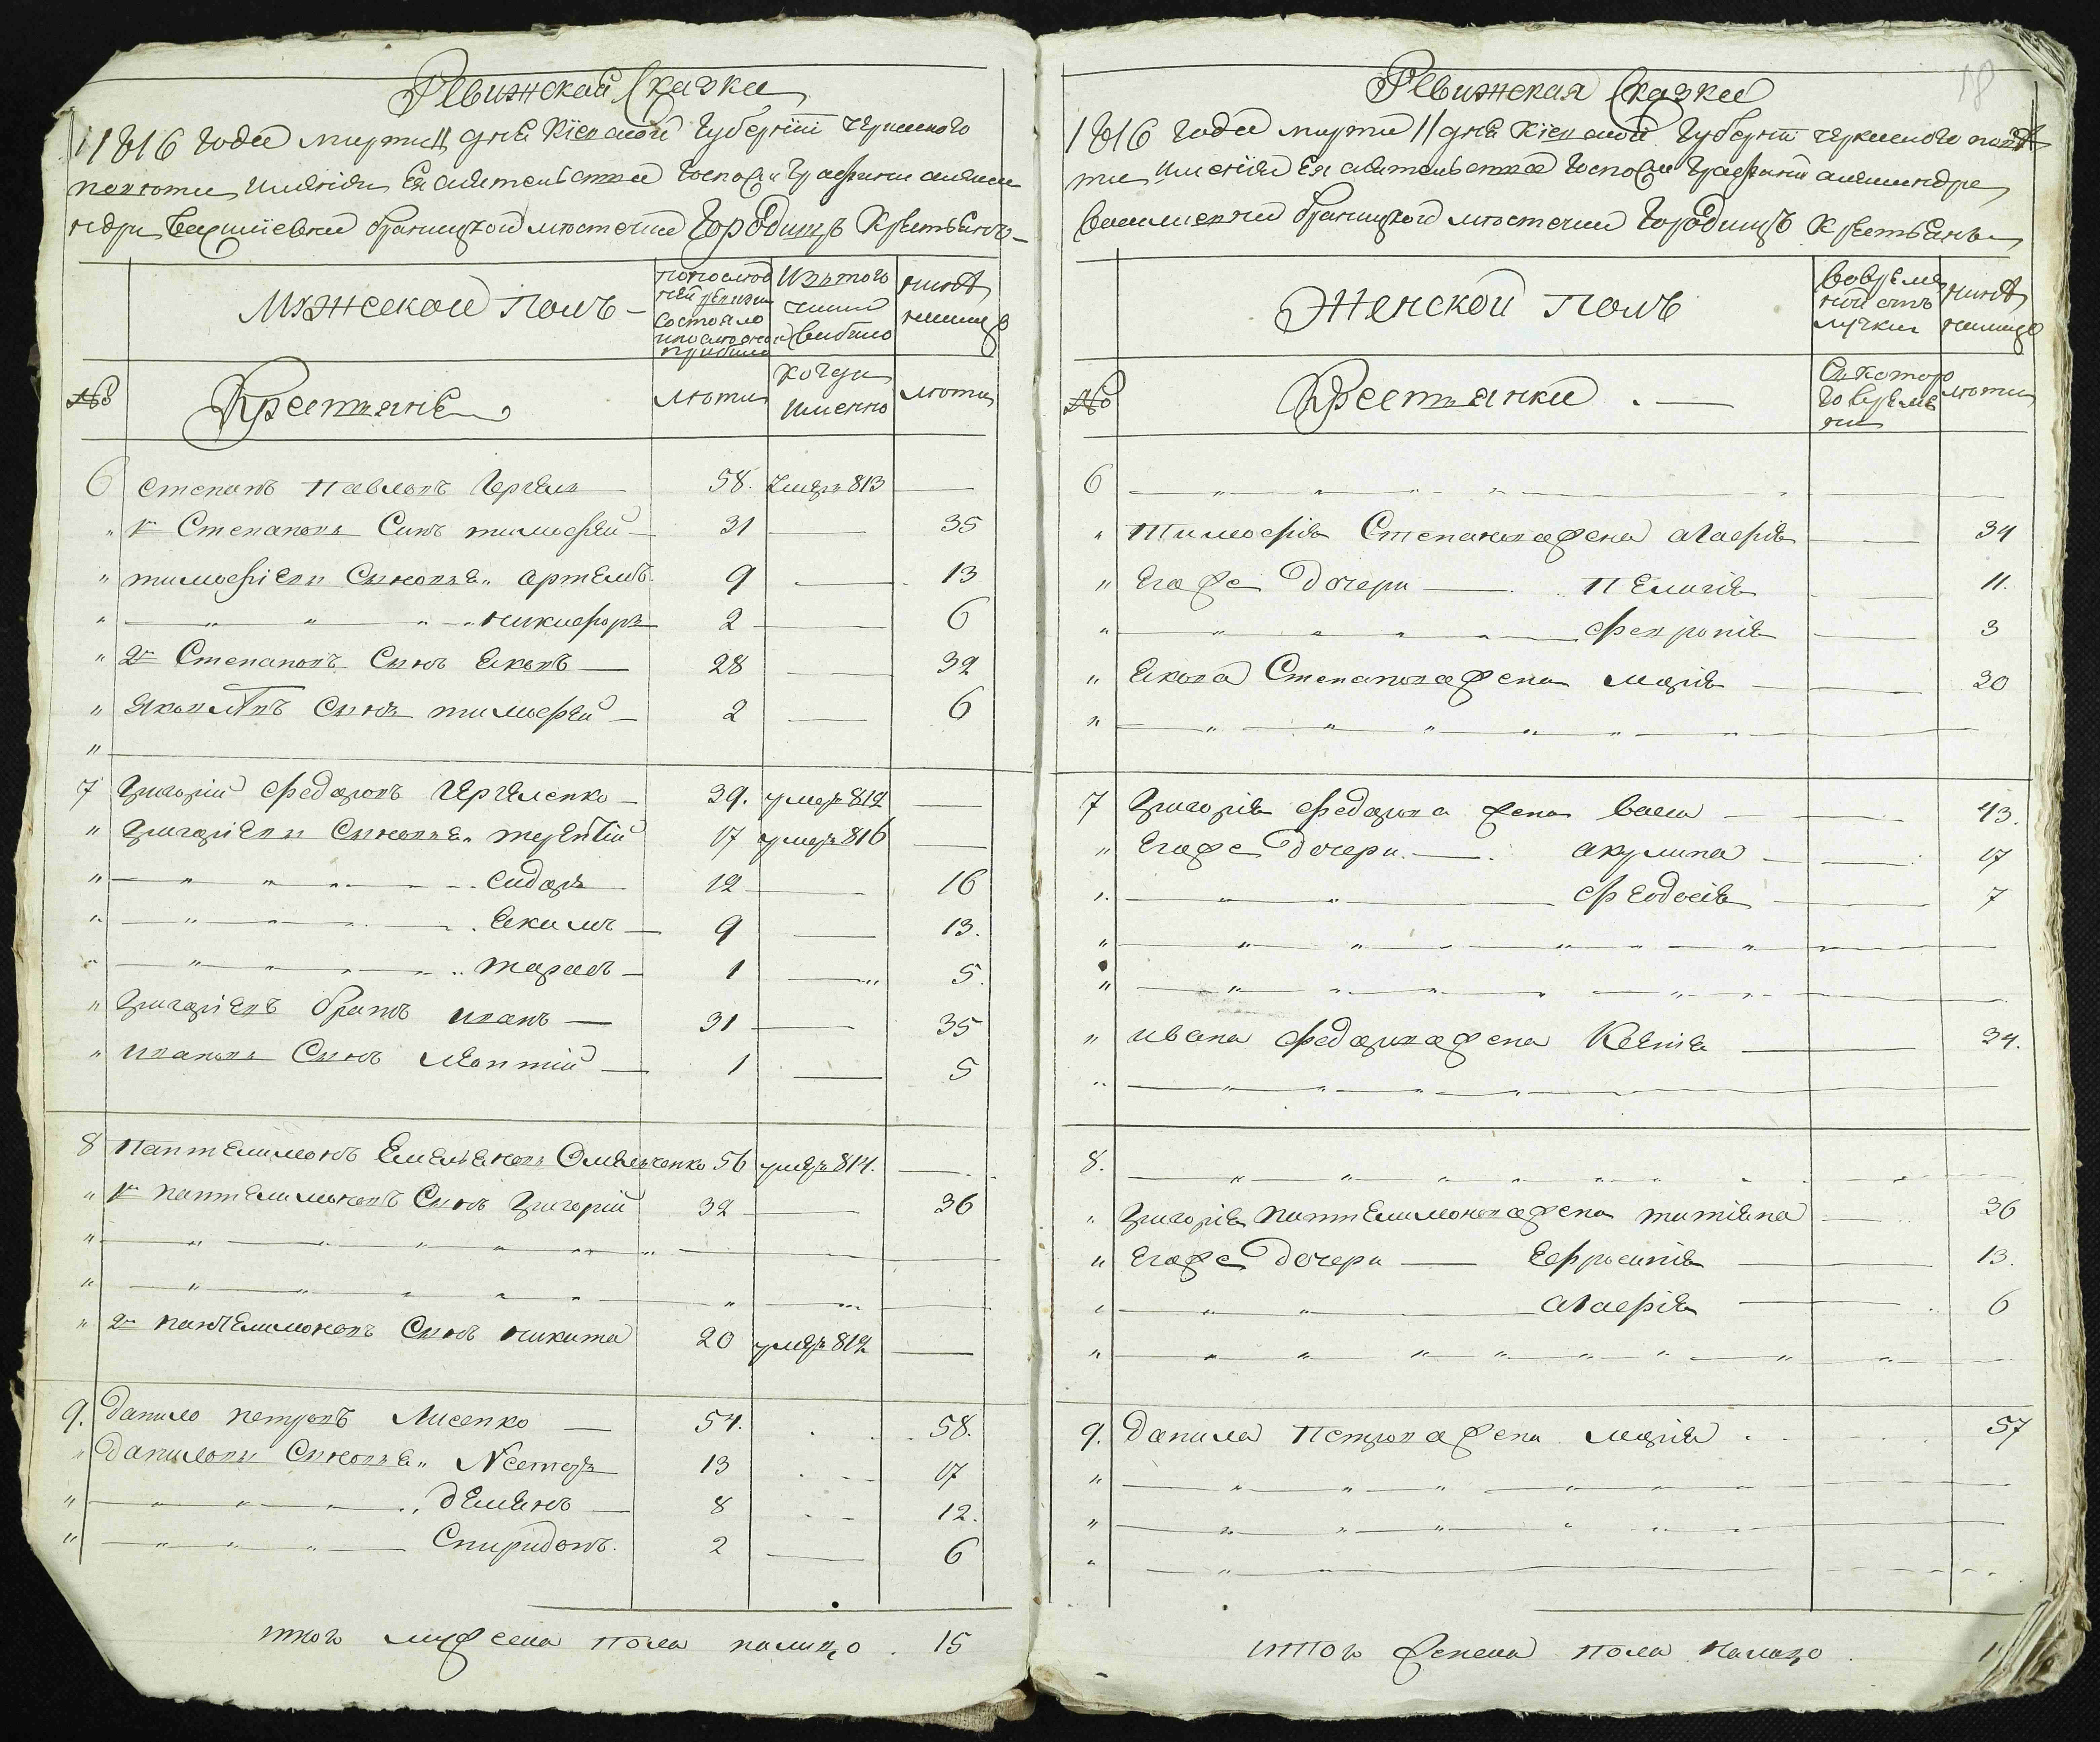 Ревижская Сказка
1816 года марта 11 дня Кіевской Губерніи Черкаского
повета имянія Ея сиятельства Госпожи Графини алексан
ндри Василіевни браницкой местечка Городища Крестьянъ
Мужеской Полъ
По последней ревизии состояло и после оной прибыло
Изъ того числа выбыло
ныне налицо
№
Крестьяне
лета
когда именно
лета
6 Степанъ Павловъ Гергель 58. умеръ 813 —
" 1й Степановъ Синъ тимофей 31 — 35
" тимофіевы Сыновья " артемъ 9 — 13
" никифоръ 2 — 6
" 2й Степановъ Сынъ Яковъ 28 — 32
" Яковлевъ Сынъ тимофей 2 — 6
"
7 Григорій Федоровъ Гергеленко 39. умеръ 812 —
" Григоріевы Сыновья " терентій 17 умеръ 816 —
" Сидоръ 12 — 16
" Якимъ 9 — 13.
" тарасъ 1 — 5.
" Григоріевъ братъ иванъ 31 — 35
" ивановъ Сынъ Леонтій 1 — 5
8 Пантелимонъ Емельяновъ Омельченко 56 умеръ 814. —
" 1й пантелимоновъ Сынъ Григорій 32 — 36
"
"
" 2й пантелимоновъ Сынъ никита 20 умеръ 812 —
9. Данило петровъ Лисенко 54. 58.
" Даниловы Сыновья " Несторъ 13 17
" демянъ 8 12.
" Спиридонъ. 2 — 6
итого мужеска пола налицо . 15
18
Ревижская Сказка
1816 года марта 11 дня Кіевской Губерніи черкаского пове
та имения Ея сиятельства Госпожи Графини александри
Василиевни браницкой местечка Городища Крестьянъ
Женской Полъ
Во временной отлучки
ныне налицо
№
Крестянки
Съ которого времени
лета
6
" Тимофія Степанова жена агафія — 34
" Егоже дочери — пелагія — 11.
" Февронія — 3
" Якова Степанова жена марія — 30
"
7 Григорія Федорова жена васса — 43.
" Егоже дочери. — акулина — 17
" Феодосія — 7
"
"
" ивана Федорова жена Ксенія — 34.
"
8.
" Григорія пантелимонова жена татіяна — 36
" Егоже дочери — Ефросинія — 13.
" агафія — 6
"
9. Данила Петрова жена марія 57
"
"
"
итого женска пола налицо